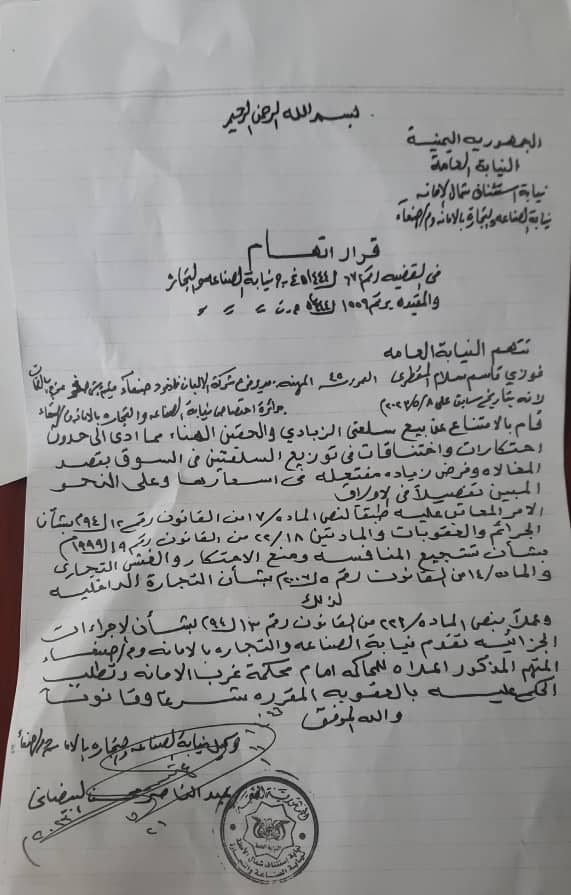 بسم الله الرحمن الرحيم
الجمهورية اليمنية
النيابة العامة
نيابة استئناف شمال الامانه
نيابة الصناعه والتجارة بالامانه وم/صنعاء
قرار اتهام
في القضيه رقم ٦٧ لـ١٤٤٤هـ نيابة الصناعه والتجاره
والمقيده برقم ١٥٥٩ لـ١٤٤٤هـ ج.ج
تتهم النيابة العامه
فوزي قاسم سلام المقطري العمر ٤٥ المهنه: مدير فرع شركة الالبان فلنجود صنعاء
لانه بتاريخ سابق على ٨/٥/٢٠٢٣م بدائرة اختصاص نيابة الصناعه والتجاره بالامانه
قام بالامتناع عن بيع سلعتي الزبادي والحقين الهناء مما ادى الى حدوث
احتكارات واختناقات في توزيع السلعتين في السوق بقصد
المغالاه وفرض زياده مفتعلة في اسعارها وعلى النحو
المبين تفصيلاً في الاوراق
الامر المعاقب عليه طبقاً لنص الماده ١٧ من القانون رقم ١٢ لـ٩٤ بشأن
الجرائم والعقوبات والمادتين ٢٢/١٨ من القانون رقم ١٩ لـ١٩٩٩م
بشأن تشجيع المنافسه ومنع الاحتكار والغش التجاري
والماده ١٤ من القانون رقم ٥ لـ٢٠٠٧م بشأن التجارة الداخليه
لذلك
وعملاً بنص الماده ٢٢١ من القانون رقم ١٣ لـ٩٤ بشأن الاجراءات
الجزائيه تقدم نيابة الصناعه والتجاره بالامانه وم/صنعاء
المتهم المذكور اعلاه للمحاكمه امام محكمة غرب الامانه وتطلب
الحكم عليه بالعقوبه المقرره شرعاً وقانوناً
والله الموفق
وكيل نيابة الصناعه والتجاره بالامانه وم/صنعاء
عبدالناصر البيضاني
الجمهورية اليمنية
النيابة العامة
نيابة استئناف شمال الأمانة
نيابة الصناعة والتجارة